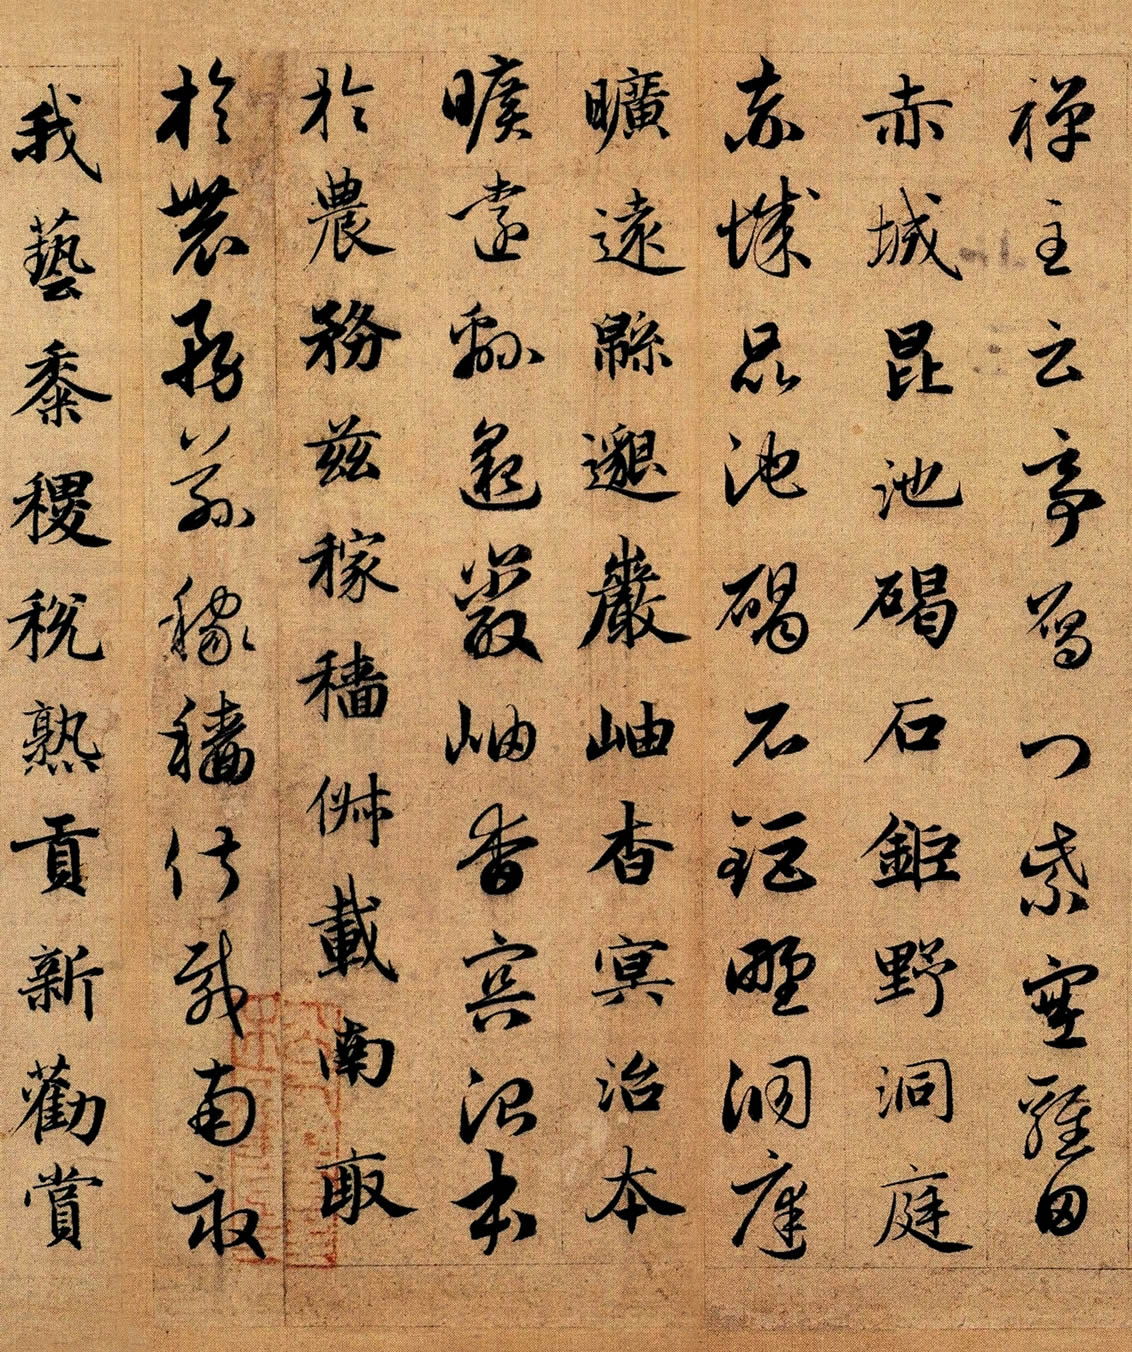 禅主云亭鴈门紫塞雞田
赤城昆池碣石鉅野洞庭
赤城昆池碣石鉅野洞庭
曠遠緜邈巖岫杳冥治本
曠遠緜邈巖岫杳冥治本
於農務茲稼穡俶載南畝
於農務茲稼穡俶載南畝
我藝黍稷稅熟貢新勸賞